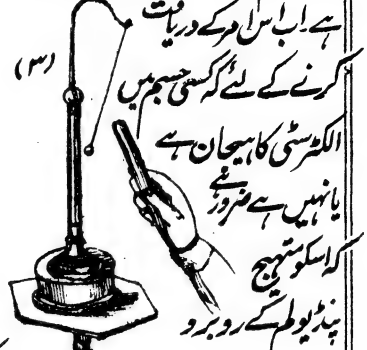 ہے۔ اب اس امر کے دریافت
کرنے کے لئے کہ کسی جسم میں
(۳)
الکٹرسٹی کا ہیجان ہے
یا نہیں ہے ضرور ہے
کہ اسکو متہیج
پنڈیولم کے روبرو